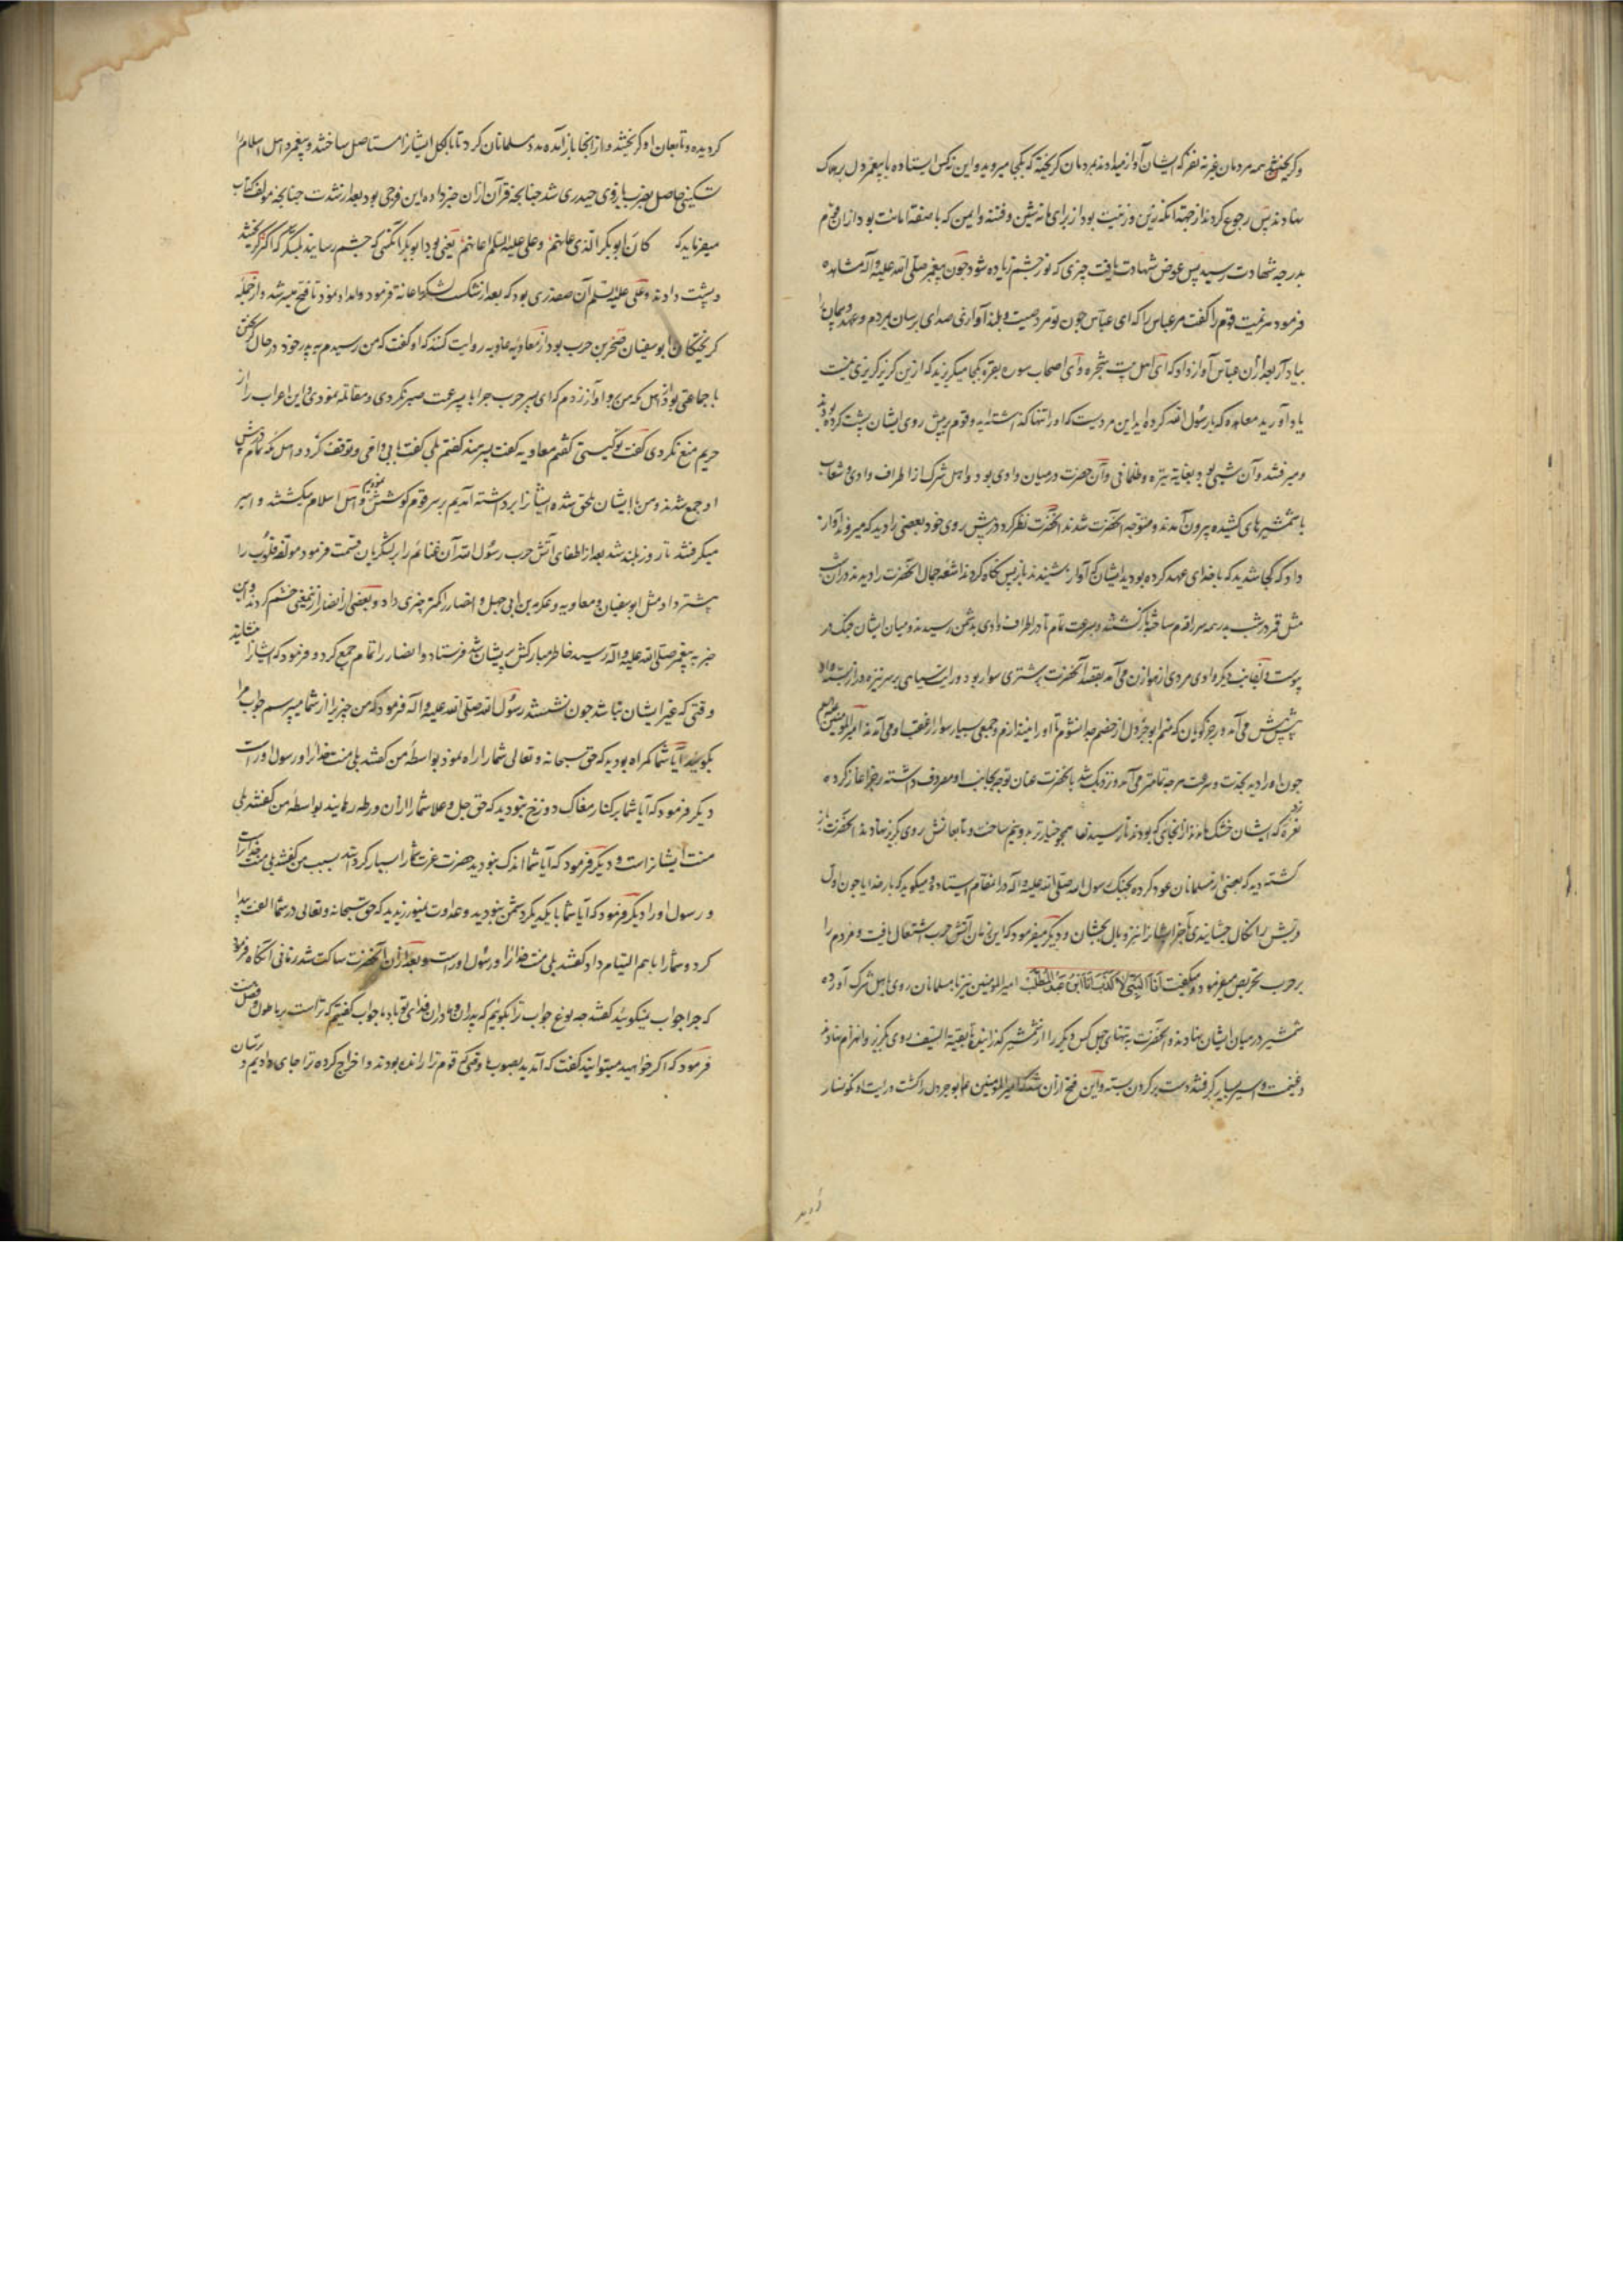 و کریختن همه مردمان غیر نه نفر که ایشان آواز میدادند بردمان کریخته که بکجا میروید و این نه کس ایستاده با پیغمبر دل بر هلاک
نهادند پس رجوع کردند از جهة آنکه زین و زینت بود از برای ما نه شین و فتنه و ایمن که با صفة امانت بود از آن قوم
بدرجه شهادت رسید پس عوض شهادت یافت چیزی که نور چشم زیاده شود چون پیغمبر صلی الله علیه و آله مشاهده
فرمود هزیمت قوم را کفت مر عباس را که ای عباس چون تو مرد صیت و بلند آوازی صدای برسان بمردم و عهد و پیمان را
بیاد آر بعد از آن عباس آواز داد که ای اهل بیت شجره و ای اصحاب سوره بقره بکجا میکریزید که ازین کریز کریزی نیست
یاد آورید معاهده که با رسول الله کرده اید این مردیست که او را تنها کذاشته اید و قوم بر پیش روی ایشان پشت کرده بودند
و میرفتند و آن شبی بود بغایة تیره و ظلمانی و آن حضرت در میان وادی بود و اهل شرک از اطراف وادی و شعاب
با شمشیرهای کشیده بیرون آمدند و متوجه آنحضرت شدند آنحضرت نظر کرد در پیش روی خود بعضی را دید که میروند آواز
داد که کجا شدید که با خدای عهد کرده بودید ایشان که آواز بشنیدند باز پس نکاه کردند اشعه جمال آنحضرت را دیدند در آن شب
مثل قمر در شب بدر همه سر را قدم ساخته باز کشتند و بسرعت تمام تا در اطراف وادی بدشمن رسیدند و میان ایشان جنک در
پیوست و از جانب دیکر وادی مردی از هوازن می آمد بقصد آنحضرت بر شتری سوار بود و رایت سیاهی بر سر نیزه دراز بسته
پیش پیش می آمد و رجز کویان که منم ابو جرول از خصم جدا نشوم تا او را نیندازم و جمعی بسیار سوار از عقب او می آمدند امیر المومنین
چون او را دید بحدت و سرعت هر چه تمامتر می آمد و نزدیک شد بآنحضرت عنان توجه بجانب او مصروف داشته رجز آغاز کرده
نعره که ایشان خشک ماندند از انجای که بودند تا رسیدنها همچو خیار تر بدو نیم ساخت و تابعانش روی بکریز نهادند آنحضرت باز
کشته دید که بعضی از مسلمانان عود کرده بجنک رسول الله صلی الله علیه و آله در آنمقام ایستاده و میکوید که بار خدایا چون اول
قریش را نکال چشانیدی آخر ایشان را نیز وبال بچشان و دیکر میفرمود که این زمان آتش حرب اشتعال یافت و مردم را
بر حرب تحریص میفرمود و میکفت انا النبی لا کذب انا ابن عبد المطلب امیر المومنین نیز با مسلمانان روی باهل شرک آورده
شمشیر در میان ایشان نهادند و آنحضرت بتنهای چهل کس دیکر را از شمشیر کذرانید تا بقیة السیف روی بکریز و انهزام نهادند
و غنیمت و اسیر بسیار کرفتند و دست بر کردن بسته و این فتح از آن شد که امیر المومنین ع ابو جرول را کشت و رایت او کونسار
کردیده و تابعان او کریختند و از انجا باز آمده مدد مسلمانان کرد تا بالکل ایشانرا مستاصل ساختند و پیغمبر و اهل اسلام را
تسکینی حاصل بضرب بازوی حیدری شد چنانچه قرآن از آن خبر داده این فرحی بود بعد از شدت چنانچه مولف کتاب
میفرماید که کان ابو بکر الذی عانهم و علی علیه السلم اعانهم یعنی بود ابو بکر آنکسی که چشم رسانید لشکر که اکثر کریختند
و پشت دادند و علی علیه السلم آن صفدری بود که بعد از شکست لشکر اعانة فرمود و امداد نمود تا فتح میسر شد و از جمله
کریختکان ابو سفیان صخر بن حرب بود از معاویه روایت کنند که او کفت که من رسیدم به پدر خود در حال کریختن
با جماعتی بود از اهل مکه من برو آواز زدم که ای پسر حرب چرا با پسر عمت صبر نکردی و مقاتله ننمودی و این اعراب را از
حریم منع نکردی کفت تو کیستی کفتم معاویه کفت پسر هند کفتم بلی کفت بابی و امی و توقف کرد و اهل مکه تمام در پیش
او جمع شدند و من با ایشان ملحق شده ایشانرا برداشته آمدیم بر سر قوم کوشش نمودیم و اهل اسلام میکشتند و اسیر
میکرفتند تا روز بلند شد بعد از اطفای آتش حرب رسول الله آن غنائم را بر لشکریان قسمت فرمود مولفة قلوب را
بیشتر داد مثل ابو سفیان و معاویه و عکرمه بن ابی جهل و انصار را کمتر چیزی داد و بعضی از انصار ازین معنی خشم کردند و این
خبر به پیغمبر صلی الله علیه و آله رسید خاطر مبارکش پریشان شد فرستاد و انصار را تمام جمع کرد و فرمود که ایشانرا بنشانید
وقتی که غیر ایشان نباشد چون نشستند رسول الله صلی الله علیه و آله فرمود که من چیزی را از شما میپرسم جواب مرا
بکوئید آیا شما کمراه بودید که حق سبحانه و تعالی شما را راه نمود بواسطه من کفتند بلی منت خدا را و رسول او راست
دیکر فرمود که آیا شما بر کنار مغاک دوزخ نبودید که حق جل و علا شما را از آن ورطه رهانید بواسطه من کفتند بلی
منت ایشانراست و دیکر فرمود که آیا شما اندک نبودید حضرت عزت شما را بسیار کردانید بسبب من کفتند بلی منت خدا راست
و رسول او را دیکر فرمود که آیا شما با یکدیکر دشمن نبودید و عداوت نمیورزیدید که حق سبحانه و تعالی در شما الفت پیدا
کرد و شما را با هم التیام داد کفتند بلی منت خدا را و رسول او راست و بعد از آن آنحضرت ساکت شد زمانی آنکاه فرمود
که چرا جواب نمیکوئید کفتند چه نوع جواب ترا بکوییم که پدران و مادران ما فدای تو باد ما جواب کفتیم که تراست بر ما طول و فضل و منت
فرمود که اکر خواهید میتوانید کفت که آمدید بصوب ما وقتی که قوم ترا رانده بودند و اخراج کرده ترا جای دادیم و
کردید